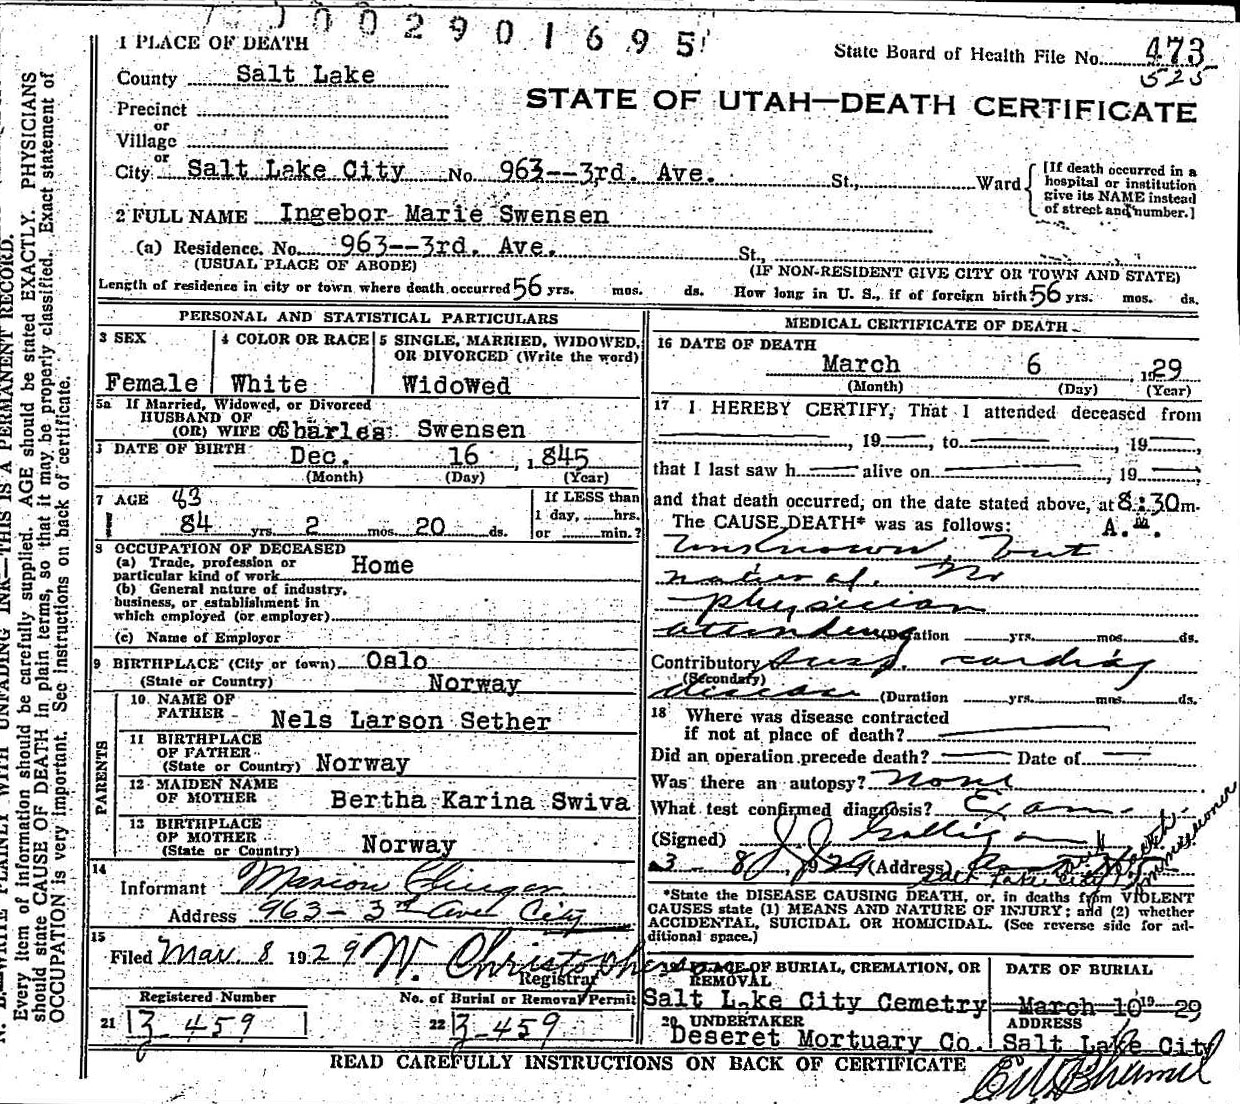 0 0 2 9 0 1 6 9 5
1 PLACE OF DEATH
State Board of Health File No. 473
525
County Salt Lake
STATE OF UTAH—DEATH CERTIFICATE
Precinct
or
Village
or
City Salt Lake City No. 963--3rd. Ave. St., Ward
[If death occurred in a
hospital or institution
give its NAME instead
of street and number.]
2 FULL NAME Ingebor Marie Swensen
(a) Residence. No. 963--3rd. Ave. St.,
(USUAL PLACE OF ABODE) (IF NON-RESIDENT GIVE CITY OR TOWN AND STATE)
Length of residence in city or town where death occurred 56 yrs. mos. ds. How long in U. S., if of foreign birth? 56 yrs. mos. ds.
PERSONAL AND STATISTICAL PARTICULARS
3 SEX 4 COLOR OR RACE 5 SINGLE, MARRIED, WIDOWED,
OR DIVORCED (Write the word)
Female White Widowed
5a If Married, Widowed, or Divorced
HUSBAND OF
(OR) WIFE OF Charles Swensen
DATE OF BIRTH Dec. 16, 1845
(Month) (Day) (Year)
7 AGE 83
If LESS than
84 yrs. 2 mos. 20 ds.
1 day, hrs.
or min.?
8 OCCUPATION OF DECEASED
(a) Trade, profession or
particular kind of work Home
(b) General nature of industry,
business, or establishment in
which employed (or employer)
(c) Name of Employer
9 BIRTHPLACE (City or town) Oslo
(State or Country) Norway
PARENTS
10 NAME OF
FATHER Nels Larson Sether
11 BIRTHPLACE
OF FATHER
(State or Country) Norway
12 MAIDEN NAME
OF MOTHER Bertha Karina Swiva
13 BIRTHPLACE
OF MOTHER
(State or Country) Norway
14
Informant Marion
Address 963 - 3rd Ave City
15
Filed Mar. 8 1929 W. Christopherson
Registrar
Registered Number No. of Burial or Removal Permit
21 Z 459 22 Z 459
MEDICAL CERTIFICATE OF DEATH
16 DATE OF DEATH
March 6 1929
(Month) (Day) (Year)
17 I HEREBY CERTIFY, That I attended deceased from
, 19 , to , 19 ,
that I last saw h alive on , 19 ,
and that death occurred, on the date stated above, at 8:30 m.
The CAUSE DEATH* was as follows: A.M.
Unknown, but
natural. No
physician
attending (Duration yrs. mos. ds.
Contributory Susp. cardiac
(Secondary)
disease (Duration yrs. mos. ds.
18 Where was disease contracted
if not at place of death?
Did an operation precede death? Date of
Was there an autopsy? None
What test confirmed diagnosis? Exam.
(Signed) J J Galligan
3 - 8 1929 (Address) Health Commissioner
Salt Lake City
*State the DISEASE CAUSING DEATH, or, in deaths from VIOLENT
CAUSES state (1) MEANS AND NATURE OF INJURY; and (2) whether
ACCIDENTAL, SUICIDAL OR HOMICIDAL. (See reverse side for ad-
ditional space.)
19 PLACE OF BURIAL, CREMATION, OR
REMOVAL
DATE OF BURIAL
Salt Lake City Cemetry March 10 1929
20 UNDERTAKER ADDRESS
Deseret Mortuary Co. Salt Lake City
READ CAREFULLY INSTRUCTIONS ON BACK OF CERTIFICATE
N. B.—WRITE PLAINLY WITH UNFADING INK—THIS IS A PERMANENT RECORD.
Every item of information should be carefully supplied. AGE should be stated EXACTLY. PHYSICIANS
should state CAUSE OF DEATH in plain terms, so that it may be properly classified. Exact statement of
OCCUPATION is very important. See instructions on back of certificate.